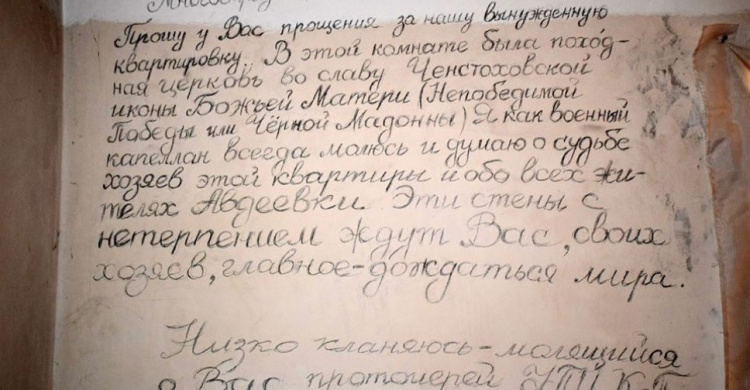 Прошу у Вас прощения за нашу вынужденную
квартировку.. В этой комнате была поход-
ная церковь во славу Ченстоховской
иконы Божьей Матери (Непобедимой
Победы или Чёрной Мадонны) Я как военный
капеллан всегда молюсь и думаю о судьбе
хозяев этой квартиры и обо всех жи-
телях Авдеевки. Эти стены с
нетерпением ждут Вас, своих
хозяев, главное-дождаться мира.
Низко кланяюсь-молящийся
о Вас протоиерей